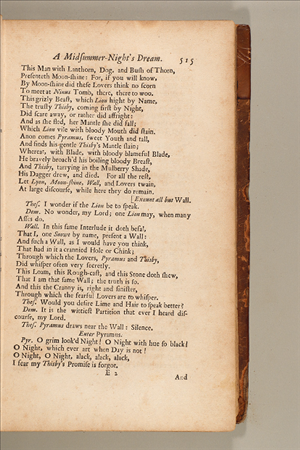 A Midsummer-Night's Dream. 515
This Man with Lanthorn, Dog, and Bush of Thorn,
Presenteth Moon-shine: For, if you will know,
By Moon-shine did these Lovers think no scorn
To meet at Ninus Tomb, there, there to woo.
This grizly Beast, which Lion hight by Name,
The trusty Thisby, coming first by Night,
Did scare away, or rather did affright:
And as she fled, her Mantle she did fall;
Which Lion vile with bloody Mouth did stain.
Anon comes Pyramus, sweet Youth and tall,
And finds his gentle Thisby's Mantle slain;
Whereat, with Blade, with bloody blameful Blade,
He bravely broach'd his boiling bloody Breast,
And Thisby, tarrying in the Mulberry Shade,
His Dagger drew, and died. For all the rest,
Let Lyon, Moon-shine, Wall, and Lovers twain,
At large discourse, while here they do remain.
[Exeunt all but Wall.
Thes. I wonder if the Lion be to speak.
Dem. No wonder, my Lord; one Lion may, when many
Asses do.
Wall. In this same Interlude it doth befal,
That I, one Snowt by name, present a Wall:
And such a Wall, as I would have you think,
That had in it a crannied Hole or Chink;
Through which the Lovers, Pyramus and Thisby,
Did whisper often very secretly.
This Loam, this Rough-cast, and this Stone doth shew,
That I am that same Wall; the truth is so.
And this the Cranny is, right and sinister,
Through which the fearful Lovers are to whisper.
Thes. Would you desire Lime and Hair to speak better?
Dem. It is the wittiest Partition that ever I heard dis-
course, my Lord.
Thes. Pyramus draws near the Wall: Silence.
Enter Pyramus.
Pyr. O grim look'd Night! O Night with hue so black!
O Night, which ever art when Day is not!
O Night, O Night, alack, alack, alack,
I fear my Thisby's Promise is forgot.
E 2
And